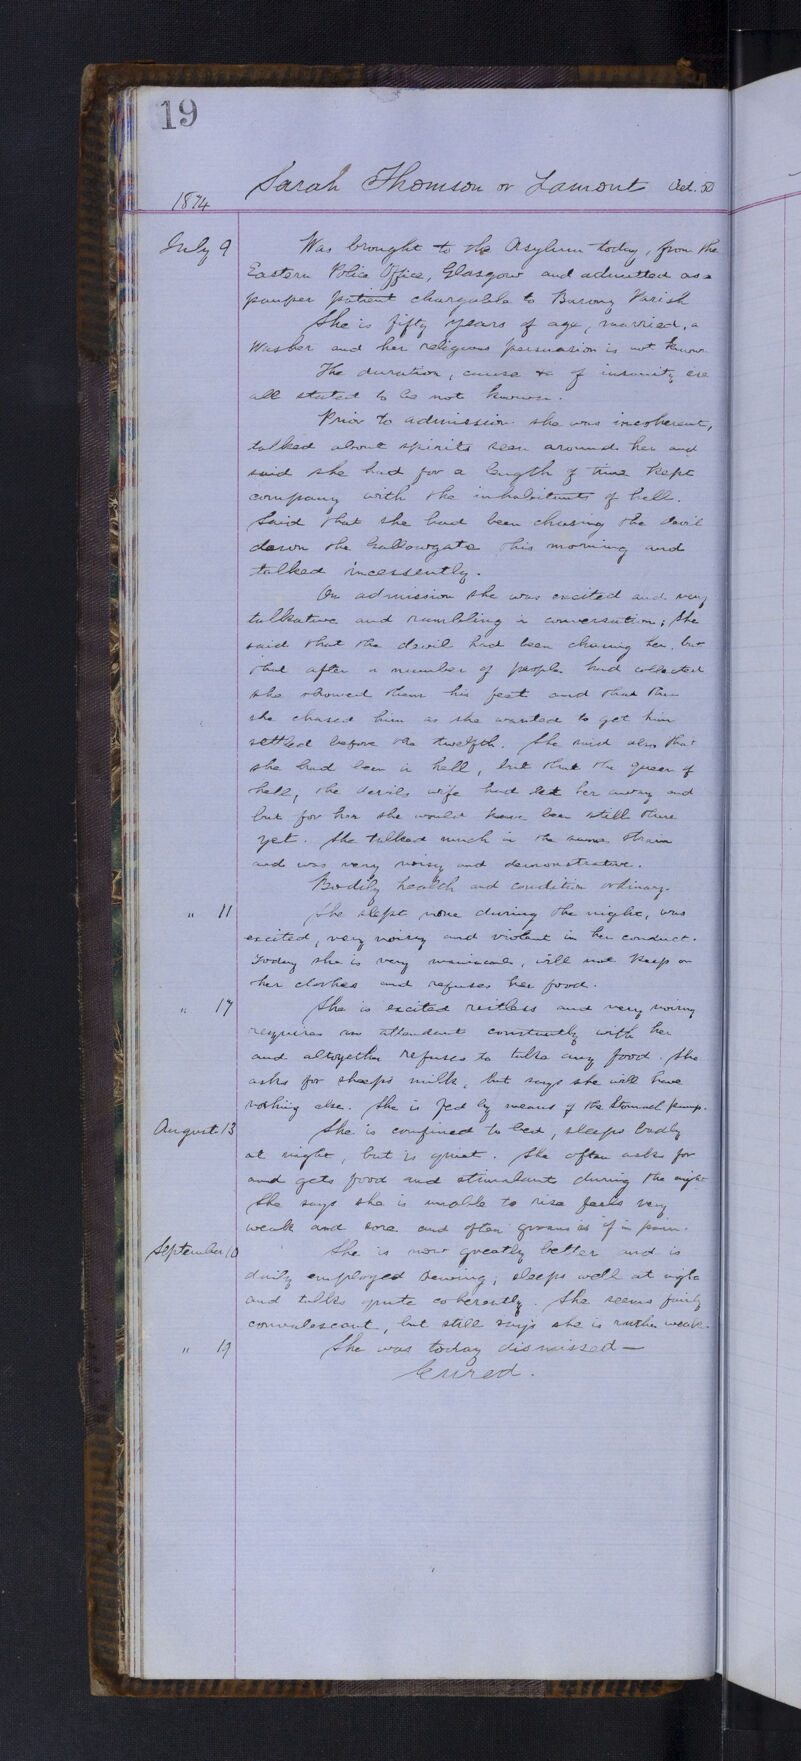 19
1874 Sarah Thomson or Lamont Aet. 50
July 9 Was brought to the Asylum today, from the
Eastern Police Office, Glasgow and admitted as a
pauper patient chargable to Barony Parish
She is fifty years of age, married, a
Washer and her religious persuasion is not known
The duration, cause &c of insanity are
all stated to be not known.
Prior to admission she was incoherent,
talked about spirits seen around her and
said she had for a length of time kept
company with the inhabitants of hell.
Said that she had been chasing the devil
down the Gallowgate this morning and
talked incessently.
On admission she was excited and very
talkative and rambling in conversation; she
said that the devil had been chasing her, but
that after a number of people had collected
she showed them his feet and that then
she chased him as she wanted to get him
settled before the twelfth. She said also that
she had been in hell, but that the queen of
hell, the devils wife had let her away and
but for her she would have been still there
yet. She talked much in the same strain
and was very noisy and demonstrative.
Bodily health and condition ordinary.
" 11 She slept none during the night, was
excited, very noisy and violent in her conduct.
Today she is very maniacal, will not keep on
her clothes and refuses her food.
" 17 She is excited restless and very noisy
requires an attendant constantly with her
and altogether refuses to take any food. She
asks for sheeps milk, but says she will have
nothing else. She is fed by means of the Stomach pump.
August 13 She is confined to bed, sleeps badly
at night, but is quiet. She often asks for
and gets food and stimulant during the night
She says she is unable to rise feels very
weak and sore and often groans as if in pain.
September 10 She is now greatly better and is
daily employed sewing; sleeps well at night
and talks quite coherently. She seems fairly
convalescent, but still says she is rather weak.
" 19 She was today dismissed—
Cured.